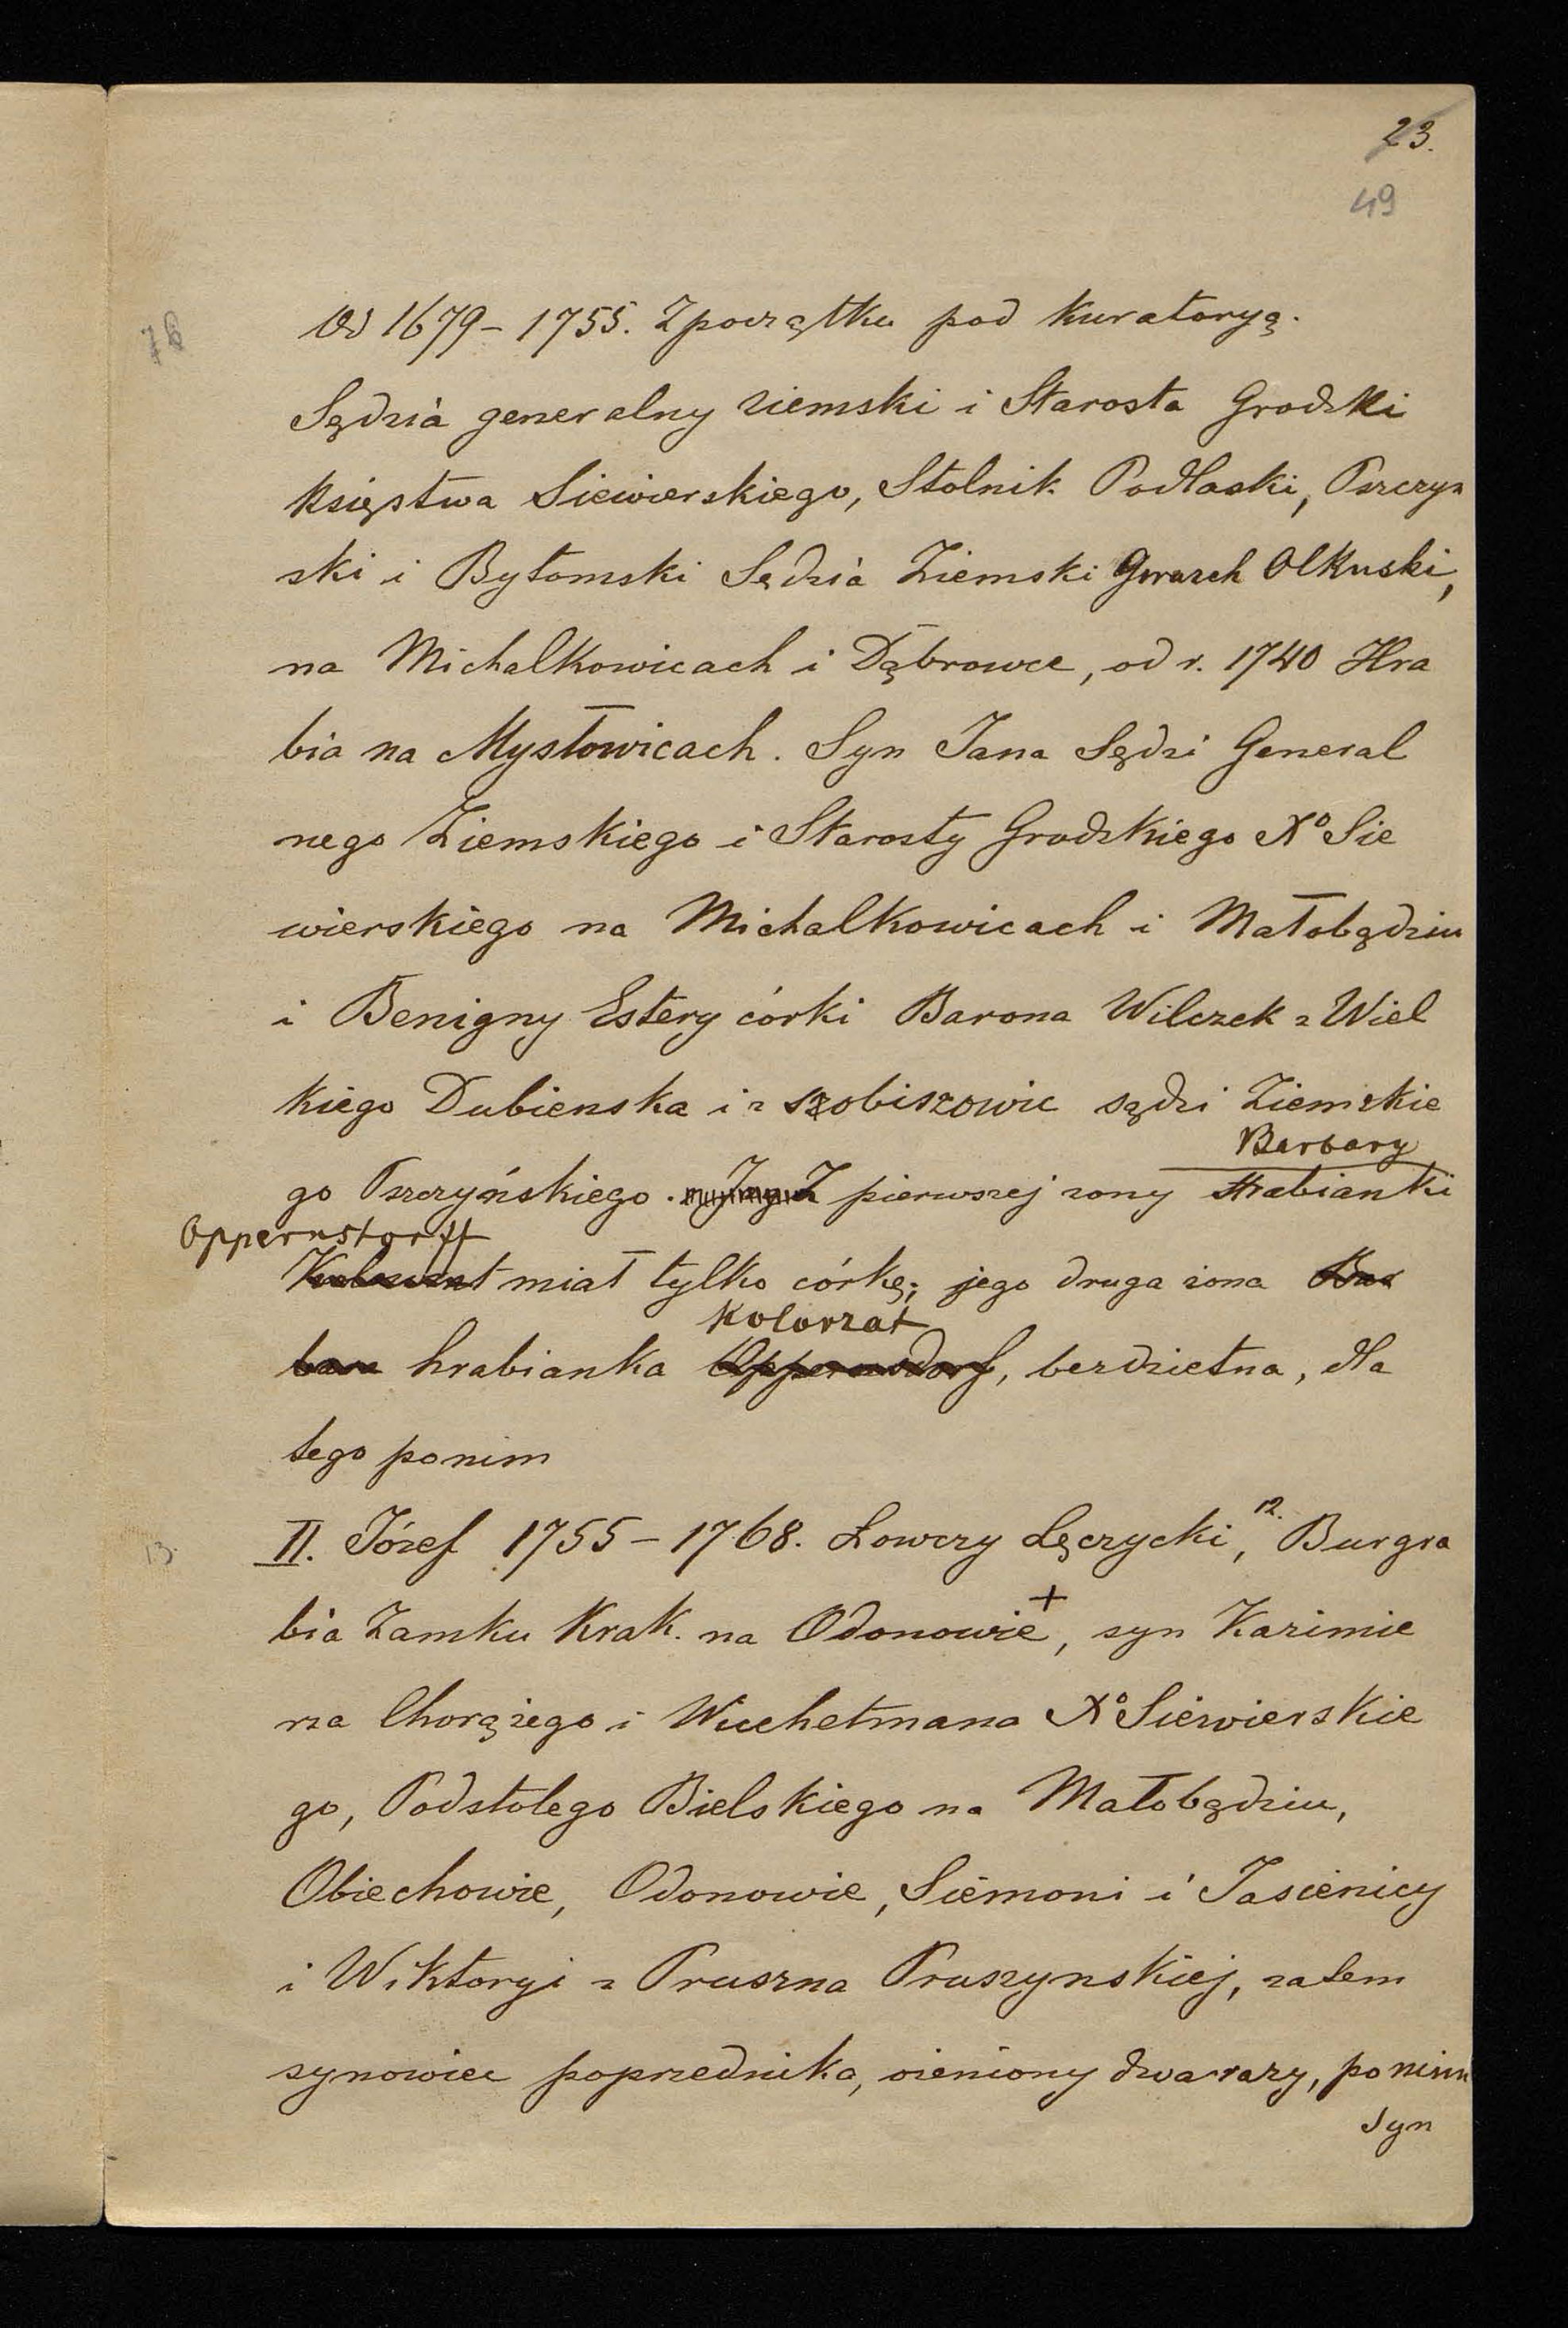 23.
49
76
Od 1679 - 1755. Z początku pod Kuratoryą.
Sędzia generalny ziemski i Starosta Grodzki
Księstwa Siewierskiego, Stolnik Podlaski, Pszczyn
ski i Bytomski Sędzia Ziemski Gwarek Olkuski,
na Michalkowicach i Dąbrowce, od r. 1740 Hra
bia na Mysłowicach. Syn Jana Sędzi General
nego Ziemskiego i Starosty Grodzkiego Xº Sie
wierskiego na Michalkowicach i Małobądziu
i Benigny Estery córki Barona Wilczek z Wiel
kiego Dubienska i z Szobiszowic sędzi Ziemskie
Barbary
go Pszczyńskiego. Z pierwszej zony Hrabianki
Oppernstorff
miał tylko córkę; jego druga żona Bar
Kolowrat
bara hrabianka Oppernsdorf, bezdzietna, dla
tego ponim
13. II. Józef 1755 - 1768. Łowczy Łęczycki, 12. Burgra
bia Zamku Krak. na Odonowie +, syn Kazimie
rza Chorążego i Wicehetmana Xº Siewierskie
go, Podstolego Bielskiego na Małobądziu,
Obiechowie, Odonowie, Siemoni i Jasienicy
i Wiktoryi z Pruszna Pruszynskiej, zatem
synowiec poprzednika, ożeniony dwa razy, po nim
syn